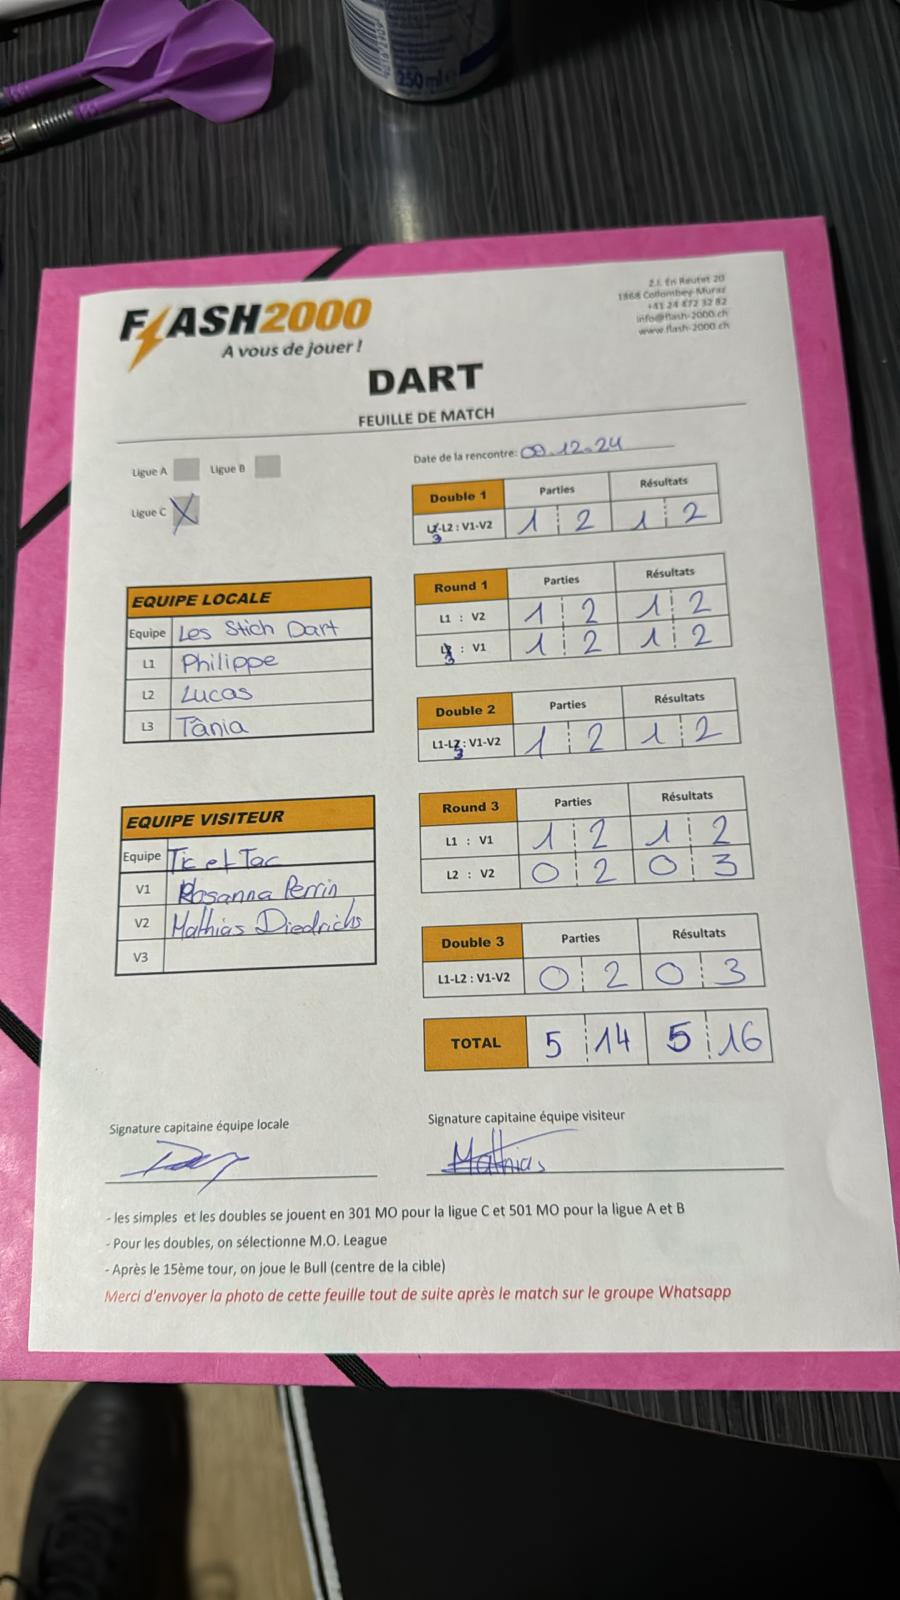 250 ml e
FLASH2000
A vous de jouer !
Z.I. En Reutet 20
1868 Collombey-Muraz
+41 24 472 32 82
info@flash-2000.ch
www.flash-2000.ch
DART
FEUILLE DE MATCH
Ligue A Ligue B
Ligue C X
Date de la rencontre: 09.12.24
Double 1 Parties Résultats
L3-L2 : V1-V2 1 2 1 2
Round 1 Parties Résultats
L1 : V2 1 2 1 2
L3 : V1 1 2 1 2
Double 2 Parties Résultats
L1-L3 : V1-V2 1 2 1 2
Round 3 Parties Résultats
L1 : V1 1 2 1 2
L2 : V2 0 2 0 3
Double 3 Parties Résultats
L1-L2 : V1-V2 0 2 0 3
TOTAL 5 14 5 16
EQUIPE LOCALE
Equipe Les Stich Dart
L1 Philippe
L2 Lucas
L3 Tânia
EQUIPE VISITEUR
Equipe Tic et Tac
V1 Rosanna Perrin
V2 Mathias Diedrichs
V3
Signature capitaine équipe locale
Signature capitaine équipe visiteur
Mathias
- les simples et les doubles se jouent en 301 MO pour la ligue C et 501 MO pour la ligue A et B
- Pour les doubles, on sélectionne M.O. League
- Après le 15ème tour, on joue le Bull (centre de la cible)
Merci d'envoyer la photo de cette feuille tout de suite après le match sur le groupe Whatsapp